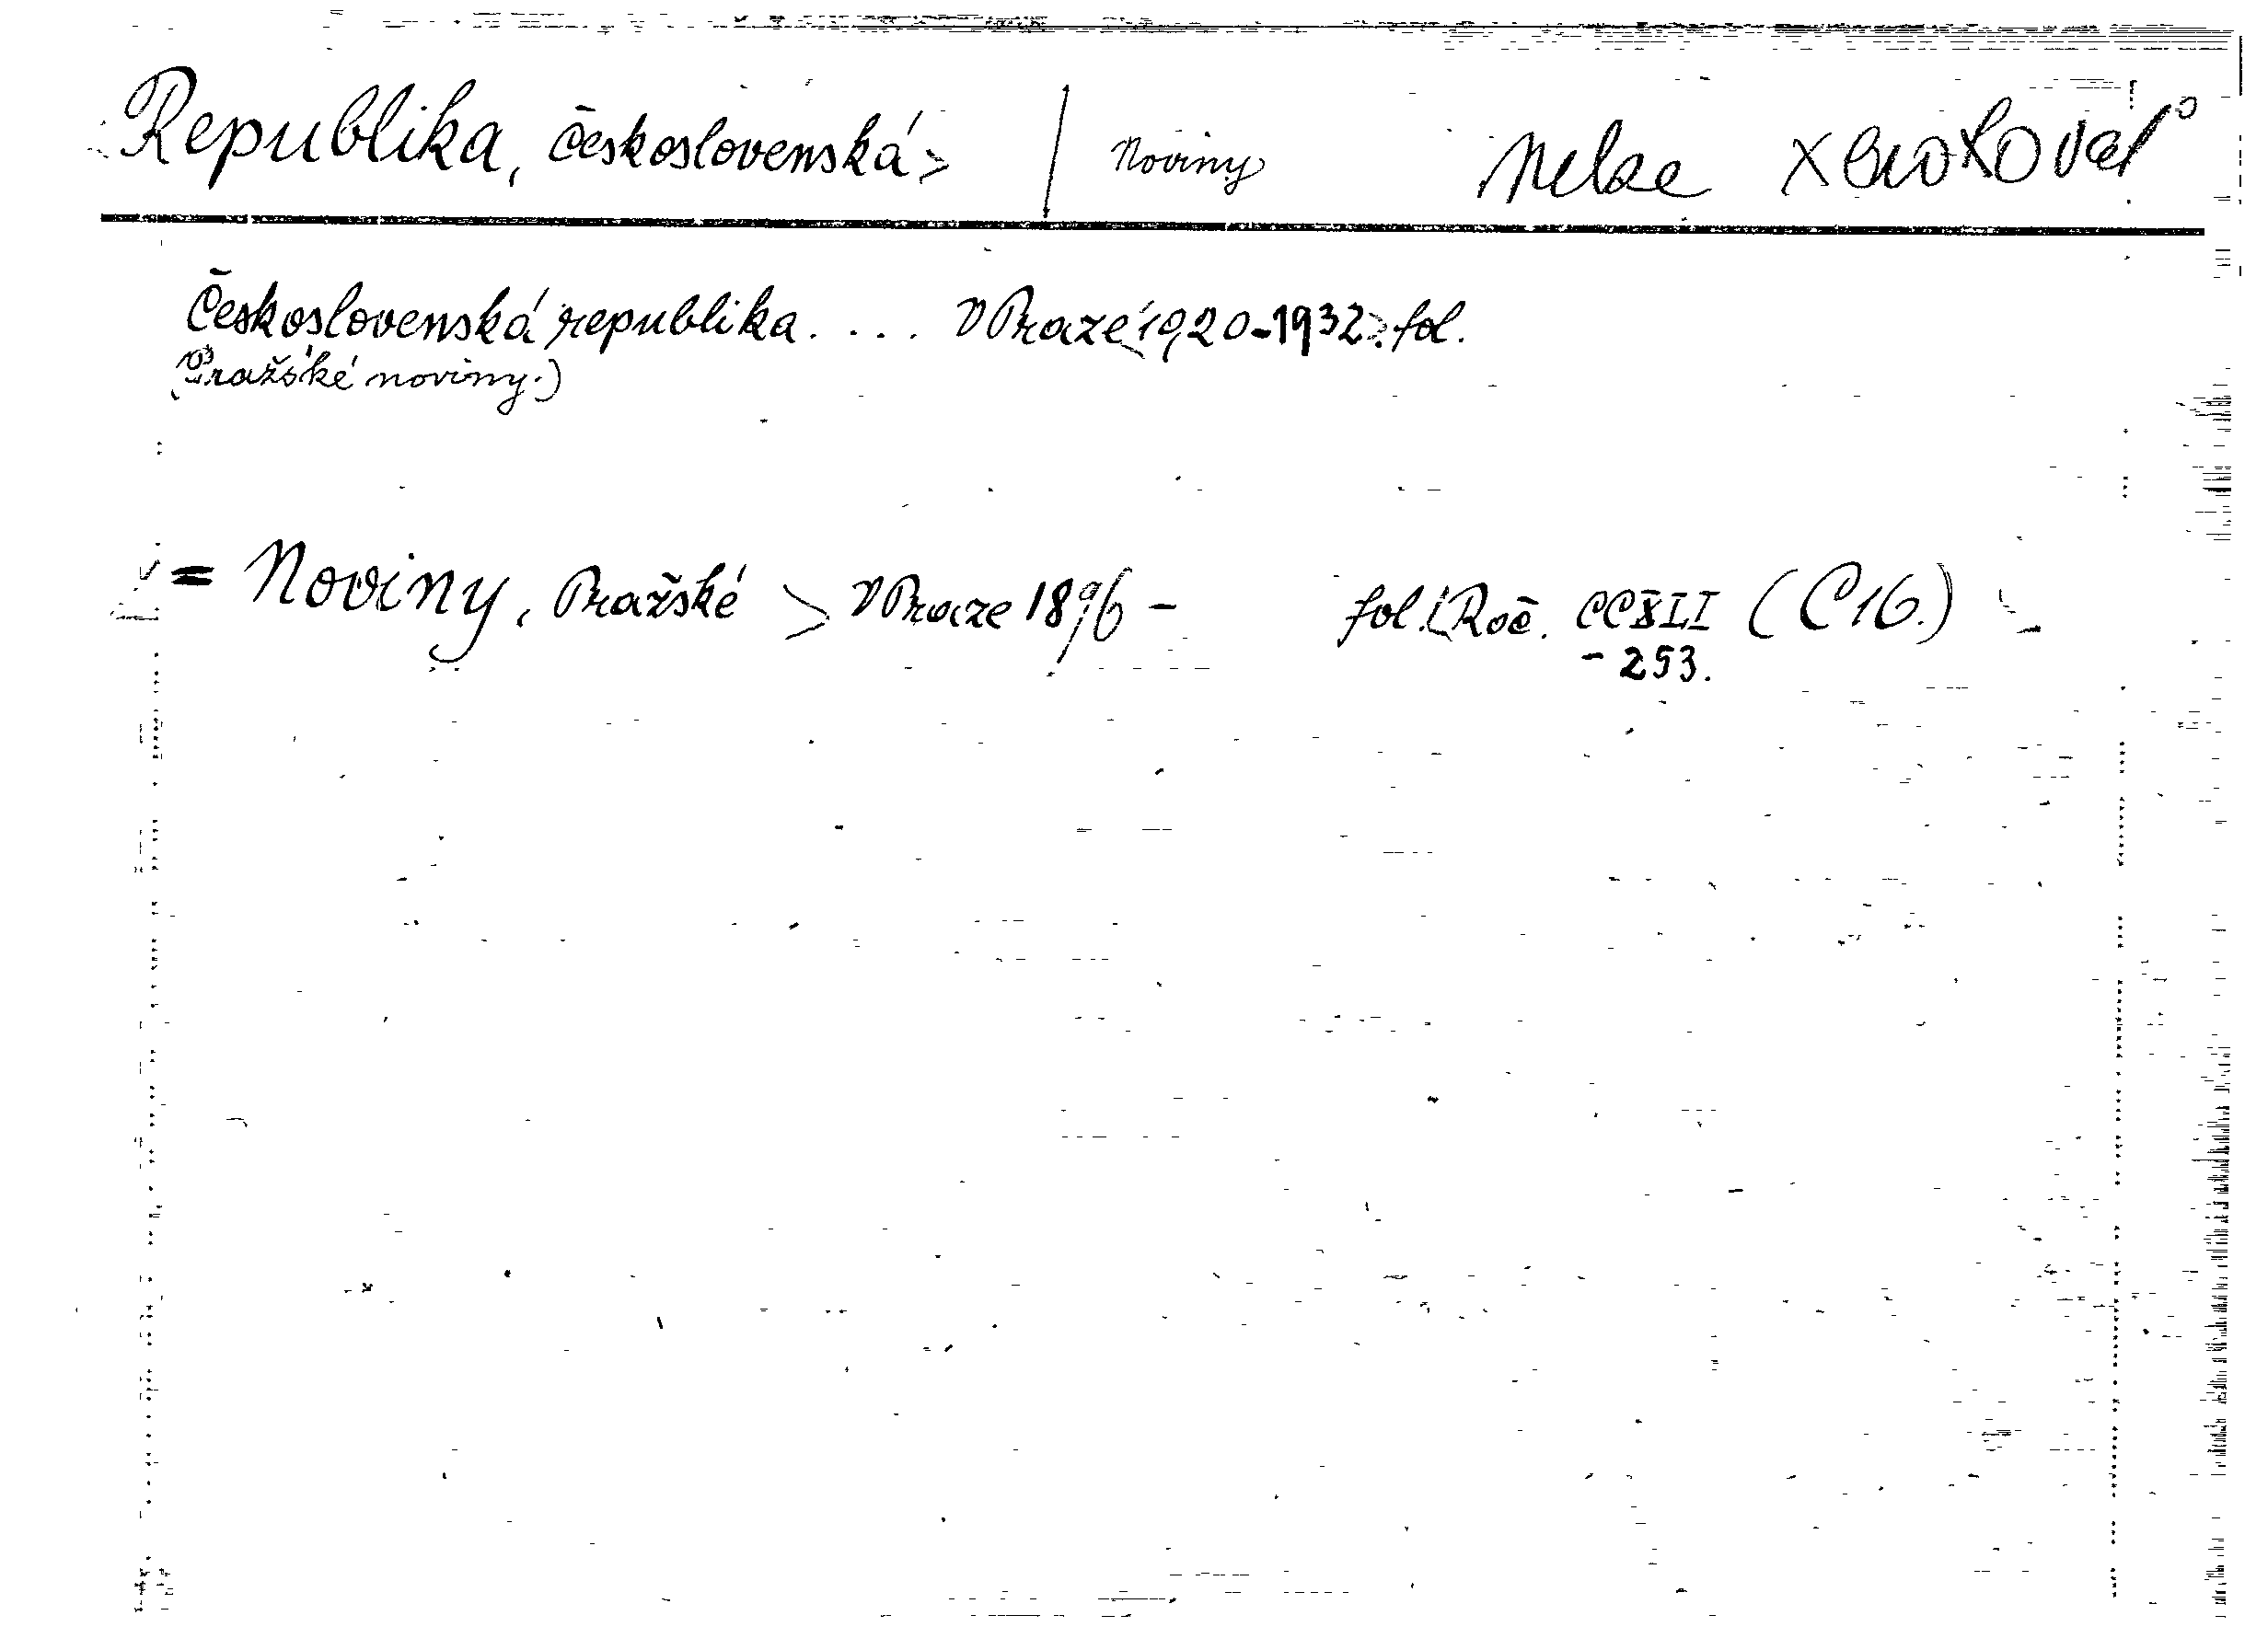 Republika, Československá > / Noviny Nelze xerokovat
Československá republika. ... V Praze 1920-1932. fol.
(Pražské noviny.)
= Noviny, Pražské > V Praze 1896 - fol. (Roč. CCXLI (C 16.)
- 253.